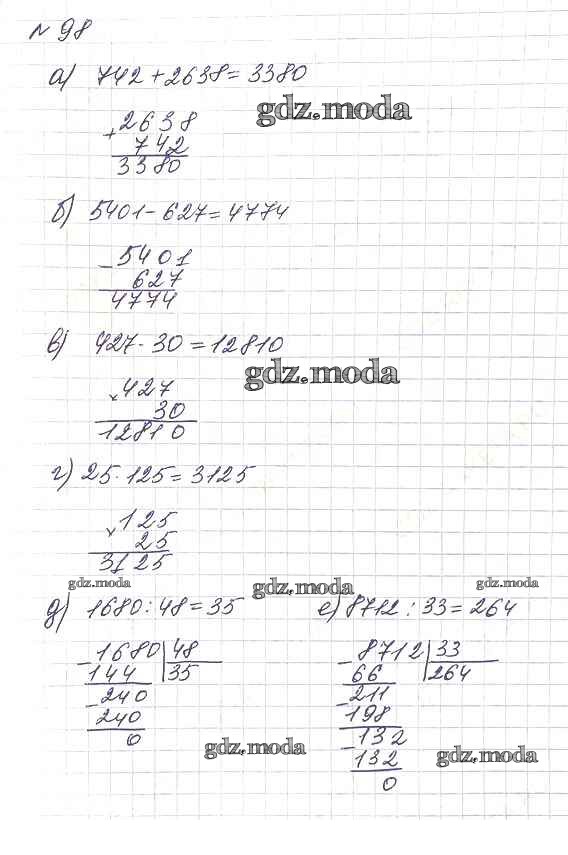 № 98
а) 742 + 2638 = 3380
gdz.moda
+ 2638
742
3380
б) 5401 - 627 = 4774
- 5401
627
4774
в) 427 · 30 = 12810
gdz.moda
× 427
30
12810
г) 25 · 125 = 3125
× 125
25
3125
gdz.moda gdz.moda gdz.moda
д) 1680 : 48 = 35 е) 8712 : 33 = 264
- 1680 | 48 - 8712 | 33
144 | 35 66 | 264
- 240 - 211
240 198
0 - 132
gdz.moda 132 gdz.moda
0